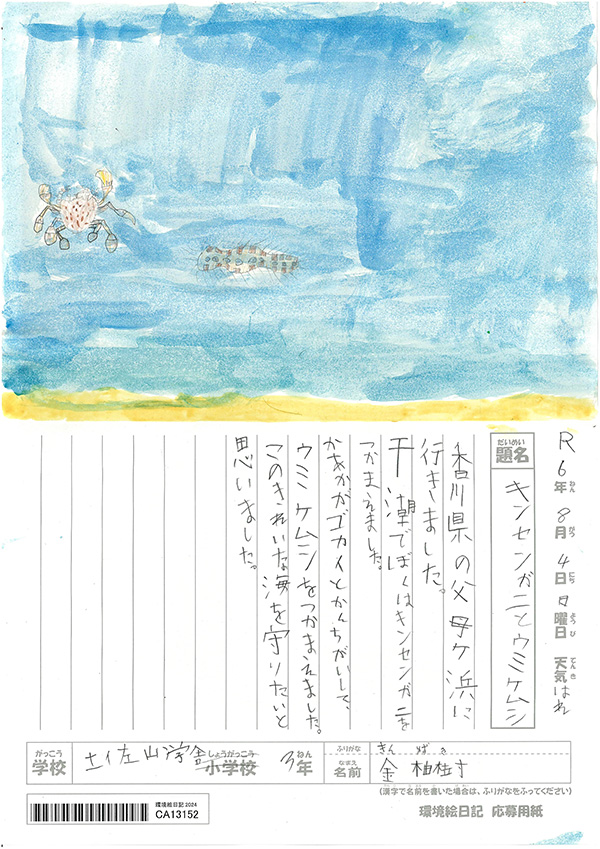 R6年8月4日日曜日 天気はれ
ねん がつ にち ようび てんき
だいめい
題名 キンセンガニとウミケムシ
香川県の父母ケ浜に
行きました。
干潮でぼくはキンセンガニを
つかまえました。
かあかがゴカイとかんちがいして、
ウミケムシをつかまえました。
このきれいな海を守りたいと
思いました。
がっこう しょうがっこう ねん
学校 土佐山学舎 小学校 3年
ふりがな きん
なまえ
名前 金
(漢字で名前を書いた場合は、ふりがなをふってください)
環境絵日記 応募用紙
環境絵日記2024
CA13152